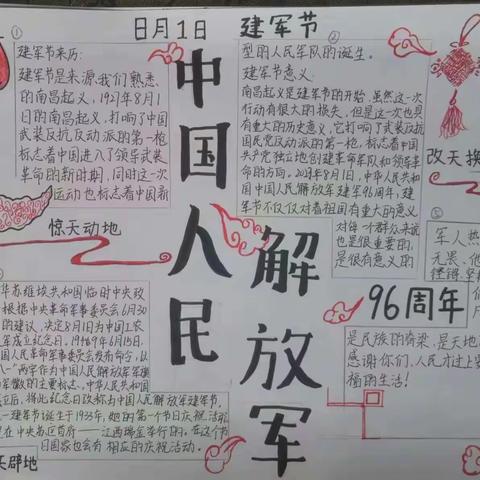 日月1日
建军节
①
建军节来历:
建军节是来源我们熟悉
的南昌起义,1927年8月1
日的南昌起义,打响了中国
武装反抗反动派的第一枪
标志着中国进入了领导武装
革命的新时期,同时这一次
运动也标志着中国新
②
型的人民军队的诞生。
建军节意义:
南昌起义是建军节的开始,虽然这一次
行动有很大的损失,但是这一次也具
有重大的历史意义,它打响了武装反抗
国民党反动派的第一枪,标志着中国
共产党独立地创建革命军队和领导革
命的方向。2023年8月1日,中华人民共和
国中国人民解放军建军96周年,建
军节不仅仅对着祖国有重大的意义
对每一个群众来说
也是很重要的,
是很有意义的
中国人民
解放军
惊天动地
改天换
96周年
华苏维埃共和国临时中央政
根据中央革命军事委员会6月30
的建议,决定8月1日为中国工农
军成立纪念日。1949年6月15日,
国人民革命军事委员会发布命令,以
一"两字作为中国人民解放军军旗
军徽的主要标志,中华人民共和国
立后,将此纪念日改称为中国人民解放军建军节,
一建军节诞生于1933年,她的第一个节日庆祝活动
是在中央苏区首府——江西瑞金举行的。在这个节
日国家也会有相应的庆祝活动。
天辟地
⑤
军人热
无畏、他
是民族的脊梁,是天地
感谢你们,人民才过上
福的生活!